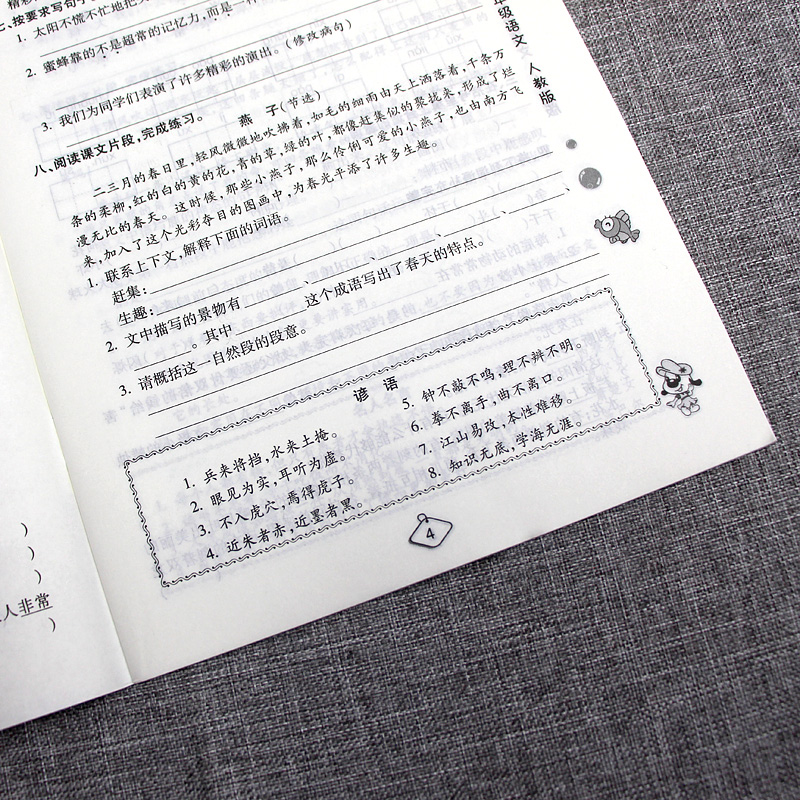 七、按要求写句子
1. 太阳不慌不忙地把
2. 蜜蜂靠的不是超常的记忆力,而是一
3. 我们为同学们表演了许多精彩的演出。(修改病句)
八、阅读课文片段,完成练习。
燕 子(节选)
二三月的春日里,轻风微微地吹拂着,如毛的细雨由天上洒落着,千条万
条的柔柳,红的白的黄的花,青的草,绿的叶,都像赶集似的聚拢来,形成了烂
漫无比的春天。这时候,那些小燕子,那么伶俐可爱的小燕子,也由南方飞
来,加入了这个光彩夺目的图画中,为春光平添了许多生趣。
1. 联系上下文,解释下面的词语。
赶集:
生趣:
2. 文中描写的景物有 、 、 、 、 、
。其中 这个成语写出了春天的特点。
3. 请概括这一自然段的段意。
谚 语
1. 兵来将挡,水来土掩。
2. 眼见为实,耳听为虚。
3. 不入虎穴,焉得虎子。
4. 近朱者赤,近墨者黑。
5. 钟不敲不鸣,理不辨不明。
6. 拳不离手,曲不离口。
7. 江山易改,本性难移。
8. 知识无底,学海无涯。
4
年级语文 人教版
)
)
)
人非常
)